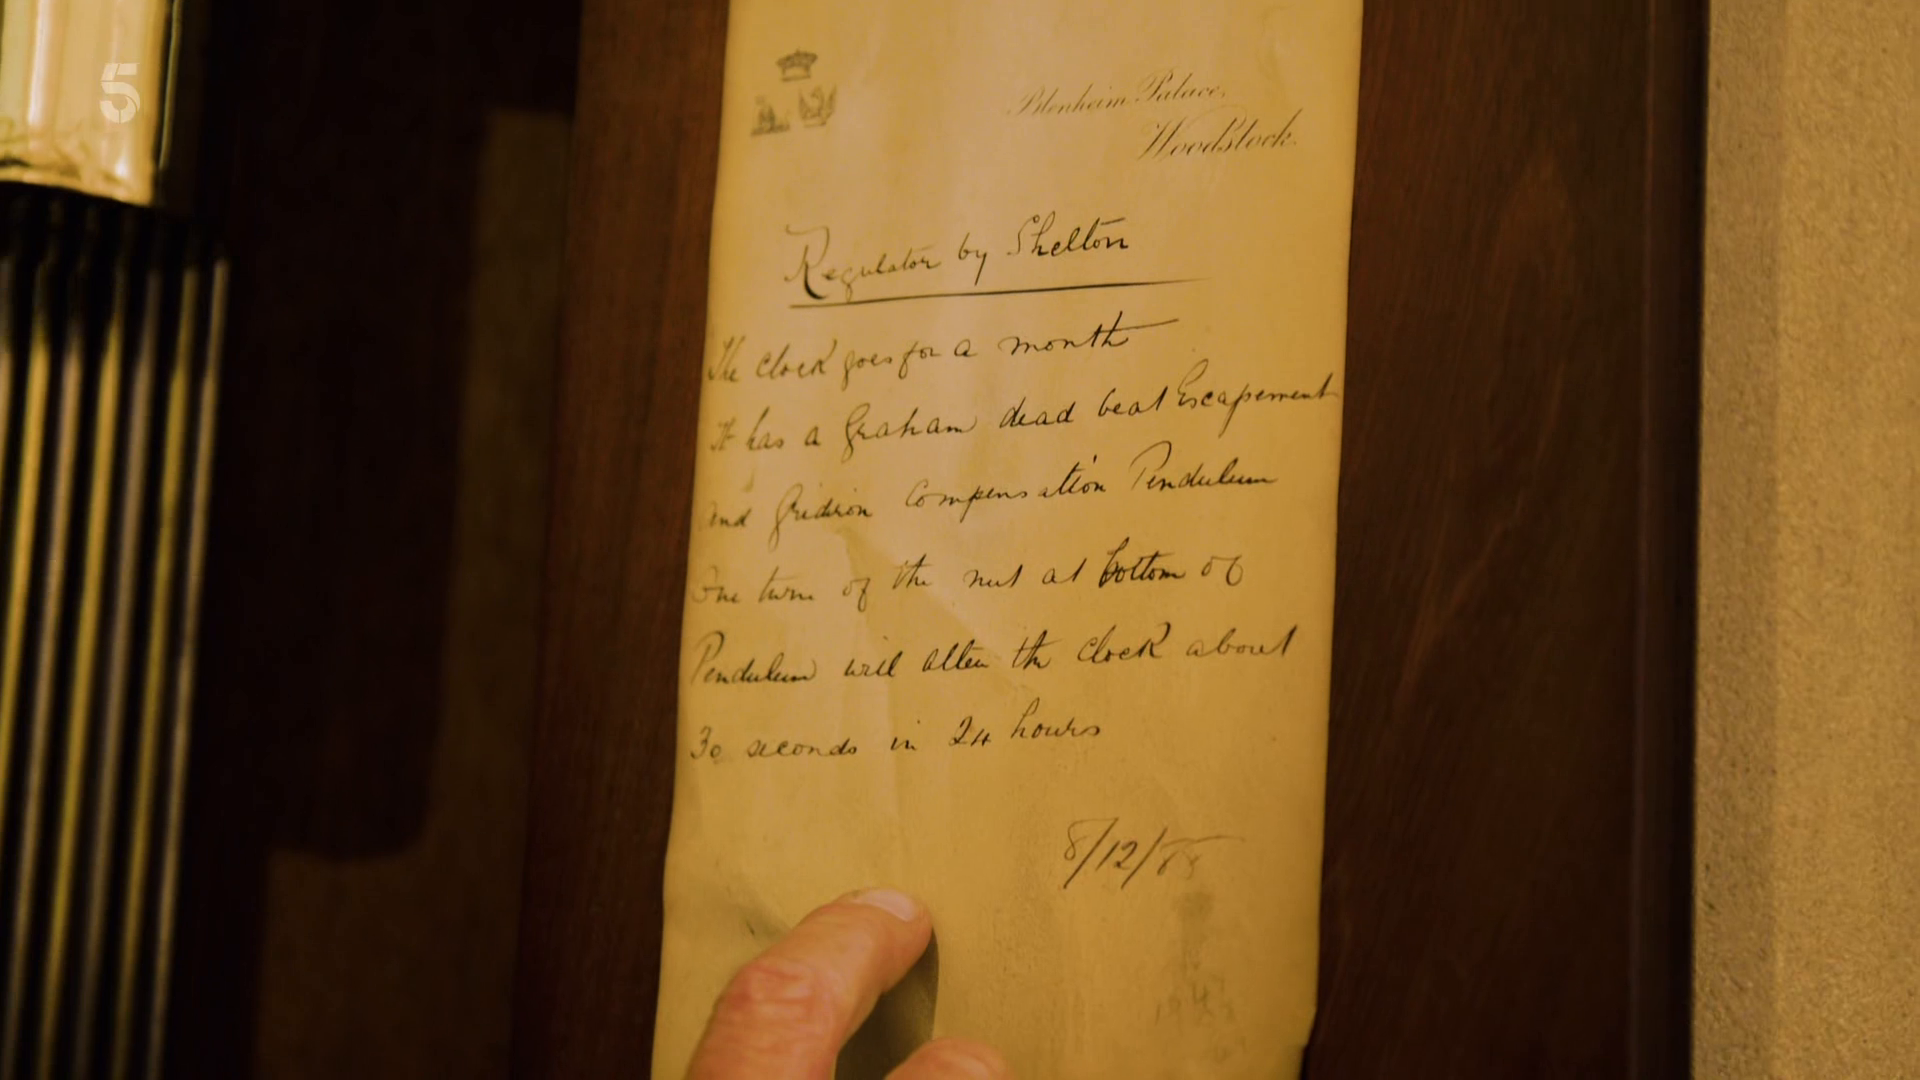 5
Blenheim Palace,
Woodstock.
Regulator by Shelton
The Clock goes for a month
It has a Graham dead beat Escapement
and Gridiron Compensation Pendulum
One turn of the nut at bottom of
Pendulum will alter the Clock about
30 seconds in 24 hours
8/12/